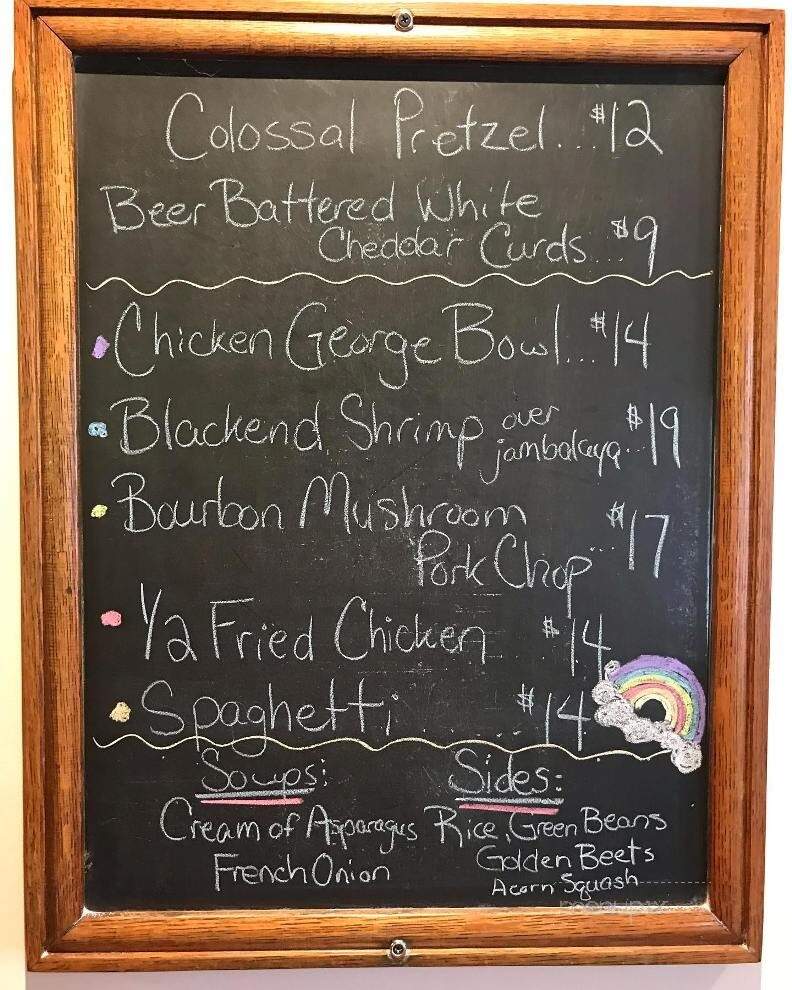 Colossal Pretzel...$12
Beer Battered White
Cheddar Curds...$9
Chicken George Bowl...$14
Blackend Shrimp over jambalaya...$19
Bourbon Mushroom
Pork Chop...$17
1/2 Fried Chicken...$14
Spaghetti......$14
Soups: Sides:
Cream of Asparagus Rice, Green Beans
French Onion Golden Beets
Acorn Squash